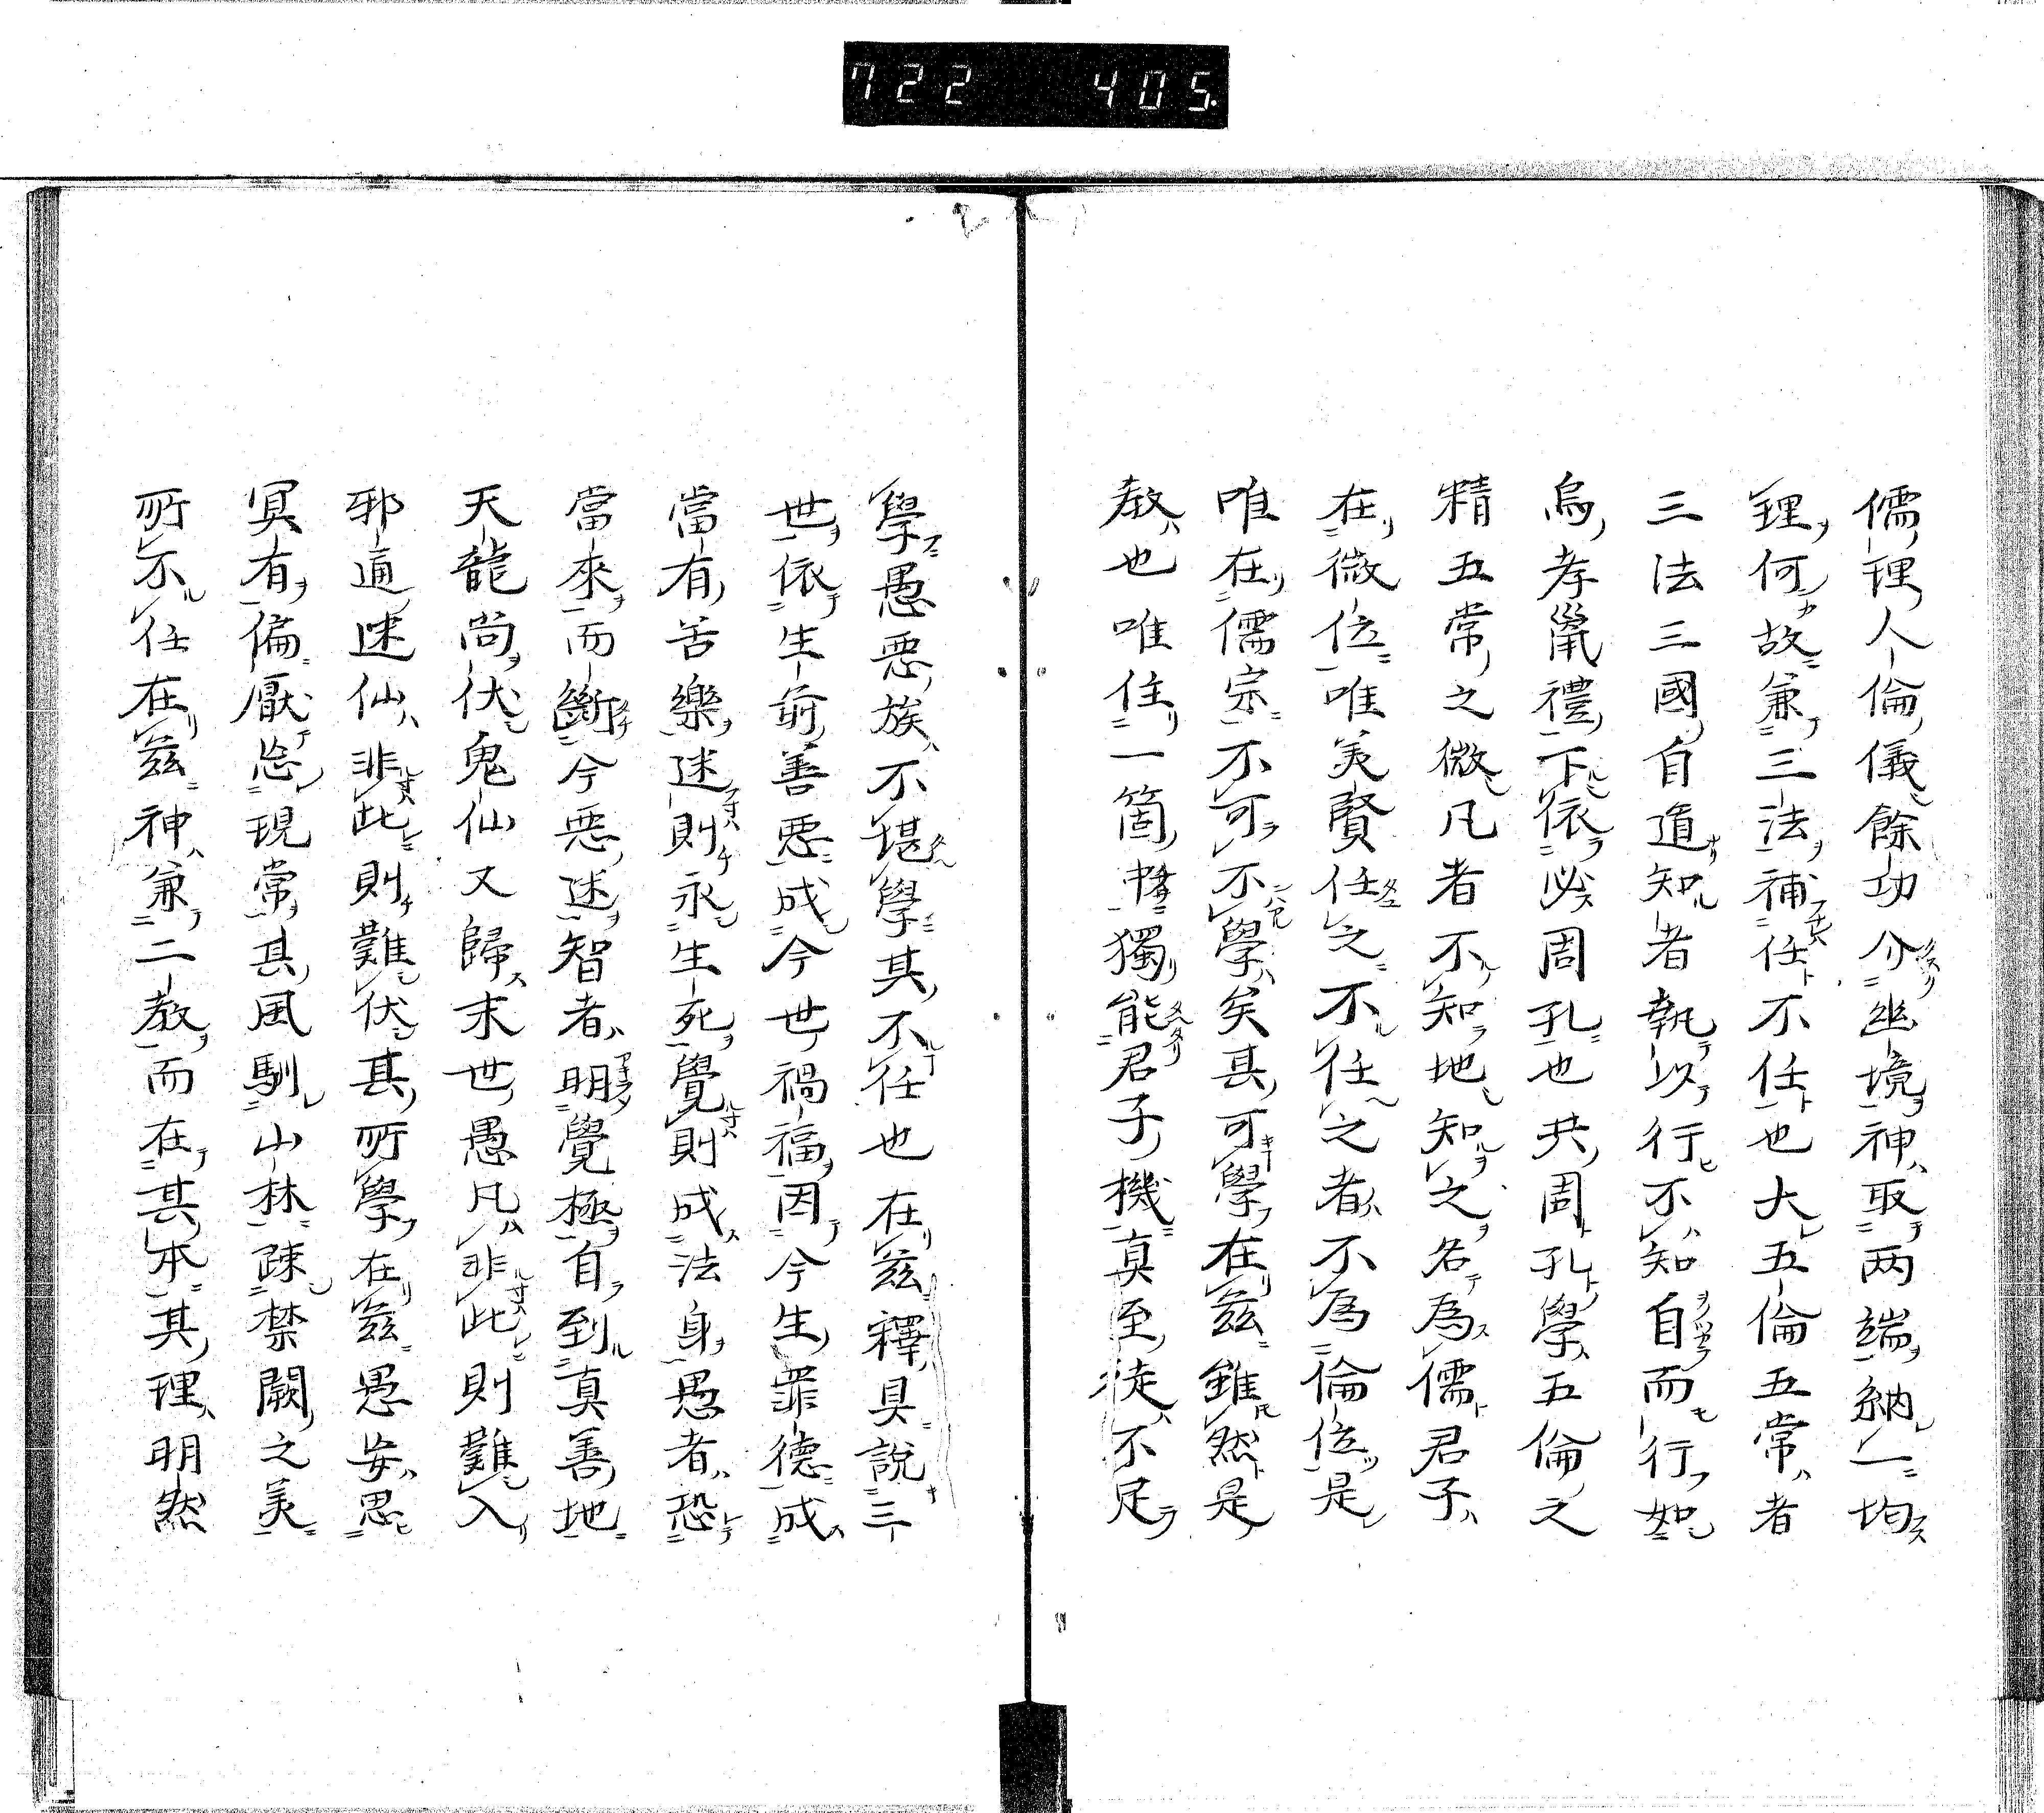 722 405
儒理人倫儀餘功分幽境神取両端納一均
理何故兼三法補任不任也大五倫五常者
三法三國自道知者執以行不知自而行如
烏孝鼠禮下依必周孔也共周孔學五倫之
精五常之微凡者不知地知之名為儒君子
在微位唯美賢任之不任之者不為倫位是
唯在儒宗不可不學矣其可學在茲雖然是
教也唯住一箇獨能君子機真至徒不足
學愚惡族不堪學其不任也在茲釋具說三
世依生前善惡成今世禍福因今生罪德成
當有苦樂迷則永生死覺則成法身愚者恐
當來而斷今惡迷智者明覺極自到真善地
天龍尚伏鬼仙又歸末世愚凡非此則難入
邪逼迷仙非此則難伏其所學在茲愚安思
冥有偏厭忩現常其風馴山林疎禁闕之美
所不任在茲神兼二教而在其本其理明然